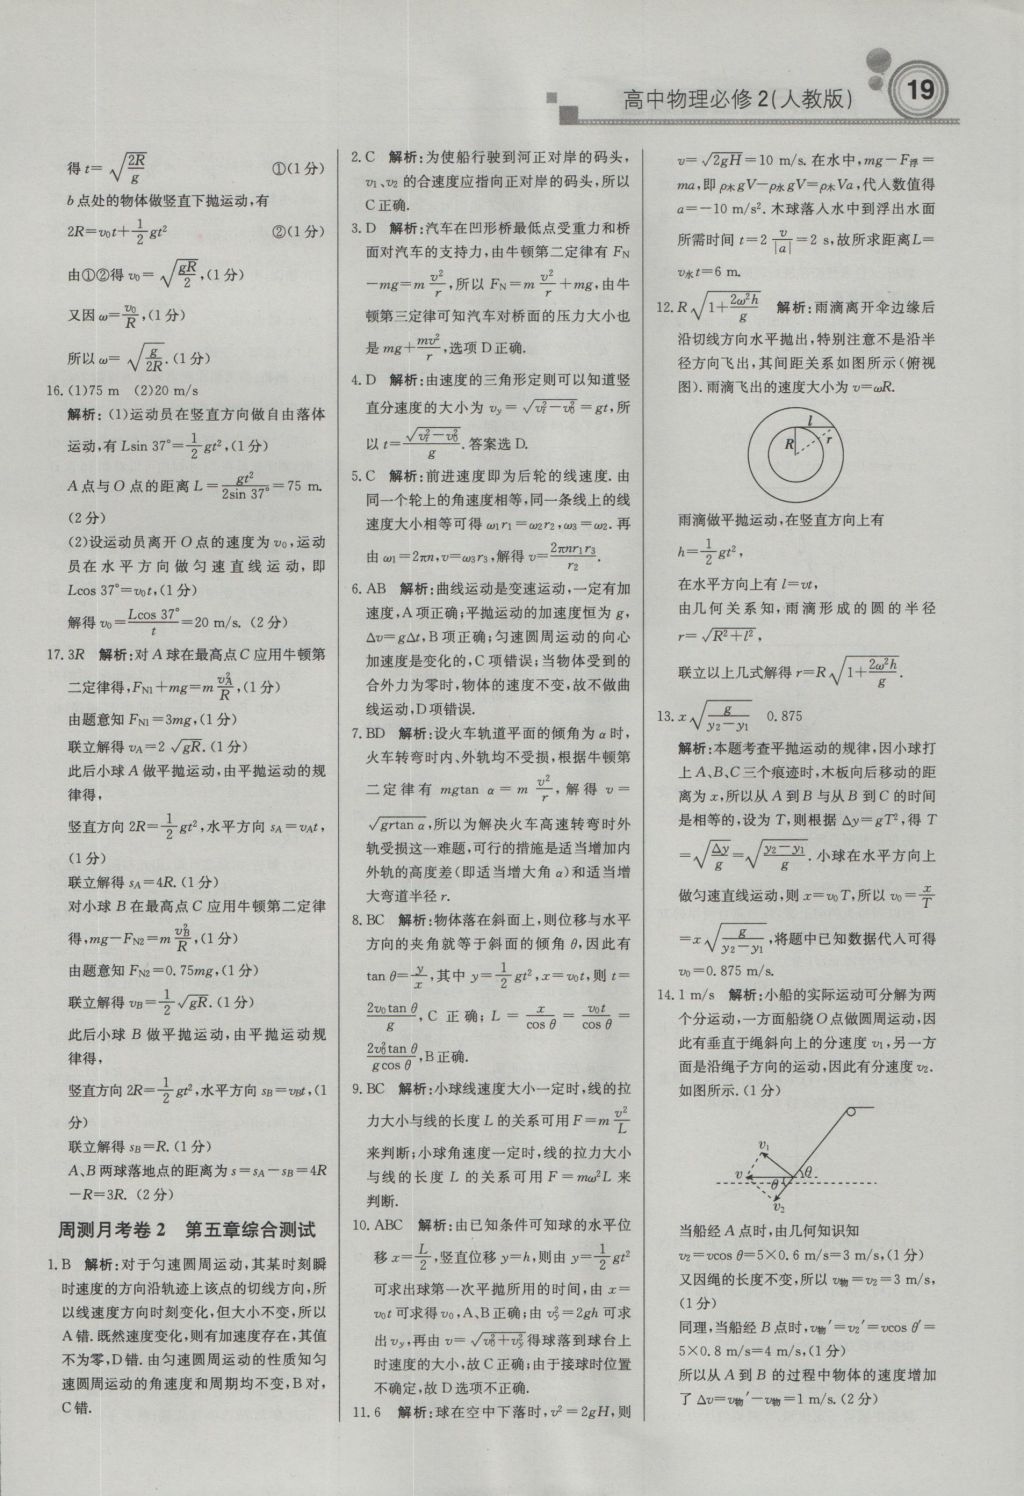 高中物理必修2(人教版)
19
得t=√(2R/g) ①(1分)
b点处的物体做竖直下抛运动,有
2R=v₀t+½gt² ②(1分)
由①②得v₀=√(gR/2),(1分)
又因ω=v₀/R,(1分)
所以ω=√(g/2R).(1分)
16.(1)75 m (2)20 m/s
解析:(1)运动员在竖直方向做自由落体
运动,有Lsin 37°=½gt²,(1分)
A点与O点的距离L=gt²/(2sin 37°)=75 m.
(2分)
(2)设运动员离开O点的速度为v₀,运动
员在水平方向做匀速直线运动,即
Lcos 37°=v₀t,(1分)
解得v₀=Lcos 37°/t=20 m/s.(2分)
17.3R 解析:对A球在最高点C应用牛顿第
二定律得,F_N1+mg=m v_A²/R,(1分)
由题意知F_N1=3mg,(1分)
联立解得v_A=2√(gR).(1分)
此后小球A做平抛运动,由平抛运动的规
律得,
竖直方向2R=½gt²,水平方向s_A=v_At,
(1分)
联立解得s_A=4R.(1分)
对小球B在最高点C应用牛顿第二定律
得,mg-F_N2=m v_B²/R,(1分)
由题意知F_N2=0.75mg,(1分)
联立解得v_B=½√(gR).(1分)
此后小球B做平抛运动,由平抛运动规
律得,
竖直方向2R=½gt²,水平方向s_B=v_Bt,(1
分)
联立解得s_B=R.(1分)
A、B两球落地点的距离为s=s_A-s_B=4R
-R=3R.(2分)
周测月考卷2 第五章综合测试
1.B 解析:对于匀速圆周运动,其某时刻瞬
时速度的方向沿轨迹上该点的切线方向,所
以线速度方向时刻变化,但大小不变,所以
A错.既然速度变化,则有加速度存在,其值
不为零,D错.由匀速圆周运动的性质知匀
速圆周运动的角速度和周期均不变,B对,
C错.
2.C 解析:为使船行驶到河正对岸的码头,
v₁、v₂的合速度应指向正对岸的码头,所以
C正确.
3.D 解析:汽车在凹形桥最低点受重力和桥
面对汽车的支持力,由牛顿第二定律有F_N
-mg=m v²/r,所以F_N=m v²/r+mg,由牛
顿第三定律可知汽车对桥面的压力大小也
是mg+mv²/r,选项D正确.
4.D 解析:由速度的三角形定则可以知道竖
直分速度的大小为v_y=√(v_t²-v₀²)=gt,所
以t=√(v_t²-v₀²)/g.答案选D.
5.C 解析:前进速度即为后轮的线速度.由
同一个轮上的角速度相等,同一条线上的线
速度大小相等可得ω₁r₁=ω₂r₂,ω₃=ω₂.再
由ω₁=2πn,v=ω₃r₃,解得v=2πnr₁r₃/r₂.
6.AB 解析:曲线运动是变速运动,一定有加
速度,A项正确;平抛运动的加速度恒为g,
Δv=gΔt,B项正确;匀速圆周运动的向心
加速度是变化的,C项错误;当物体受到的
合外力为零时,物体的速度不变,故不做曲
线运动,D项错误.
7.BD 解析:设火车轨道平面的倾角为α时,
火车转弯时内、外轨均不受损,根据牛顿第
二定律有mgtan α=m v²/r,解得v=
√(grtan α),所以为解决火车高速转弯时外
轨受损这一难题,可行的措施是适当增加内
外轨的高度差(即适当增大角α)和适当增
大弯道半径r.
8.BC 解析:物体落在斜面上,则位移与水平
方向的夹角就等于斜面的倾角θ,因此有
tan θ=y/x,其中y=½gt²,x=v₀t,则t=
2v₀tan θ/g,C正确;L=x/cos θ=v₀t/cos θ=
2v₀²tan θ/(gcos θ),B正确.
9.BC 解析:小球线速度大小一定时,线的拉
力大小与线的长度L的关系可用F=m v²/L
来判断;小球角速度一定时,线的拉力大小
与线的长度L的关系可用F=mω²L来
判断.
10.ABC 解析:由已知条件可知球的水平位
移x=L/2,竖直位移y=h,则由y=½gt²
可求出球第一次平抛所用的时间,由x=
v₀t可求得v₀,A、B正确;由v_y²=2gh可求
出v_y,再由v=√(v₀²+v_y²)得球落到球台上
时速度的大小,故C正确;由于接球时位置
不确定,故D选项不正确.
11.6 解析:球在空中下落时,v²=2gH,则
v=√(2gH)=10 m/s.在水中,mg-F浮=
ma,即ρ木gV-ρ水gV=ρ木Va,代入数值得
a=-10 m/s².木球落入水中到浮出水面
所需时间t=2 v/|a|=2 s,故所求距离L=
v水t=6 m.
12.R√(1+2ω²h/g) 解析:雨滴离开伞边缘后
沿切线方向水平抛出,特别注意不是沿半
径方向飞出,其间距关系如图所示(俯视
图).雨滴飞出的速度大小为v=ωR.
l
R
r
雨滴做平抛运动,在竖直方向上有
h=½gt²,
在水平方向上有l=vt,
由几何关系知,雨滴形成的圆的半径
r=√(R²+l²),
联立以上几式解得r=R√(1+2ω²h/g).
13.x√(g/(y₂-y₁)) 0.875
解析:本题考查平抛运动的规律,因小球打
上A、B、C三个痕迹时,木板向后移动的距
离为x,所以从A到B与从B到C的时间
是相等的,设为T,则根据Δy=gT²,得T
=√(Δy/g)=√((y₂-y₁)/g).小球在水平方向上
做匀速直线运动,则x=v₀T,所以v₀=x/T
=x√(g/(y₂-y₁)),将题中已知数据代入可得
v₀=0.875 m/s.
14.1 m/s 解析:小船的实际运动可分解为两
个分运动,一方面船绕O点做圆周运动,因
此有垂直于绳斜向上的分速度v₁,另一方
面是沿绳子方向的运动,因此有分速度v₂.
如图所示.(1分)
v₁
v
θ
θ
v₂
当船经A点时,由几何知识知
v₂=vcos θ=5×0.6 m/s=3 m/s,(1分)
又因绳的长度不变,所以v物=v₂=3 m/s,
(1分)
同理,当船经B点时,v物′=v₂′=vcos θ′=
5×0.8 m/s=4 m/s,(1分)
所以从A到B的过程中物体的速度增加
了Δv=v物′-v物=1 m/s.(2分)